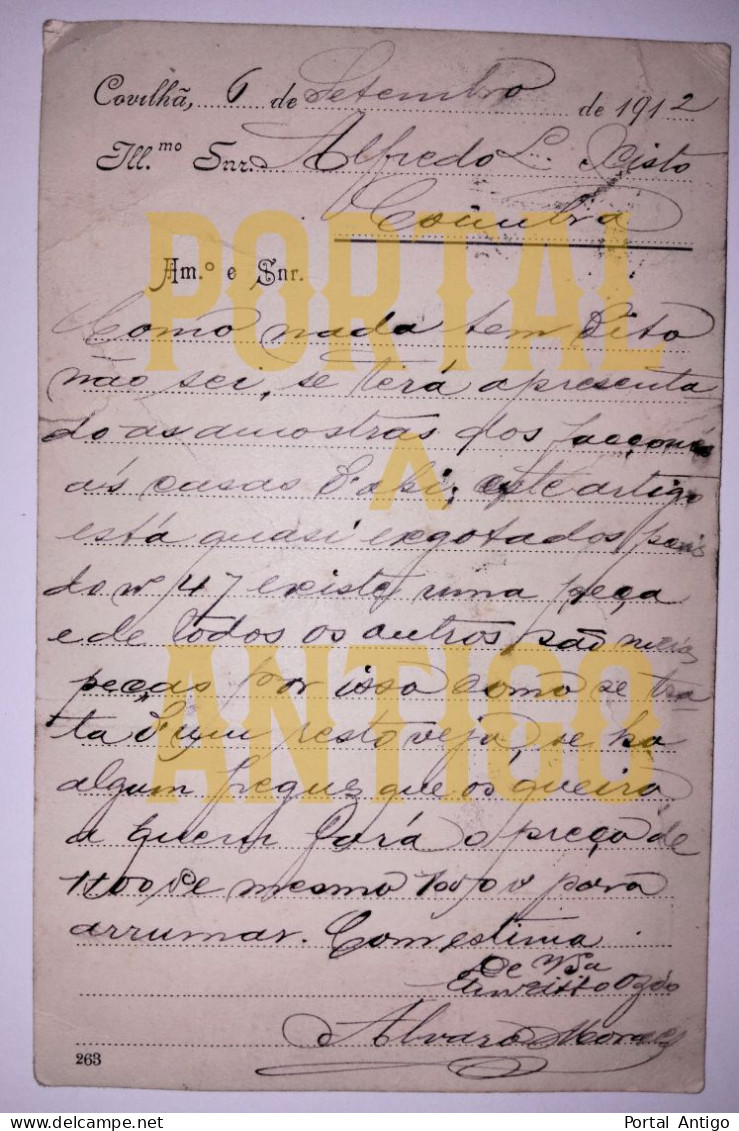 Covilhã, 6 de Setembro de 1912
Ill.mo Snr. Alfredo L. Xisto
Coimbra
Am.o e Snr.
Como nada tem dito
não sei, se terá apresenta
do as amostras dos
ás casas d'ahi; este artigo
está quasi exgotados, pois
do nº 47 existe uma peça
e de todos os outros são meias
peças por isso como se tra
ta d'um resto veja, se ha
algum freguez que os queira
a quem fará o preço de
1100 e mesmo 1000 para
arrumar. Com estima
De
Alvaro Moraes
263
PORTAL
A
ANTIGO
Portal Antigo